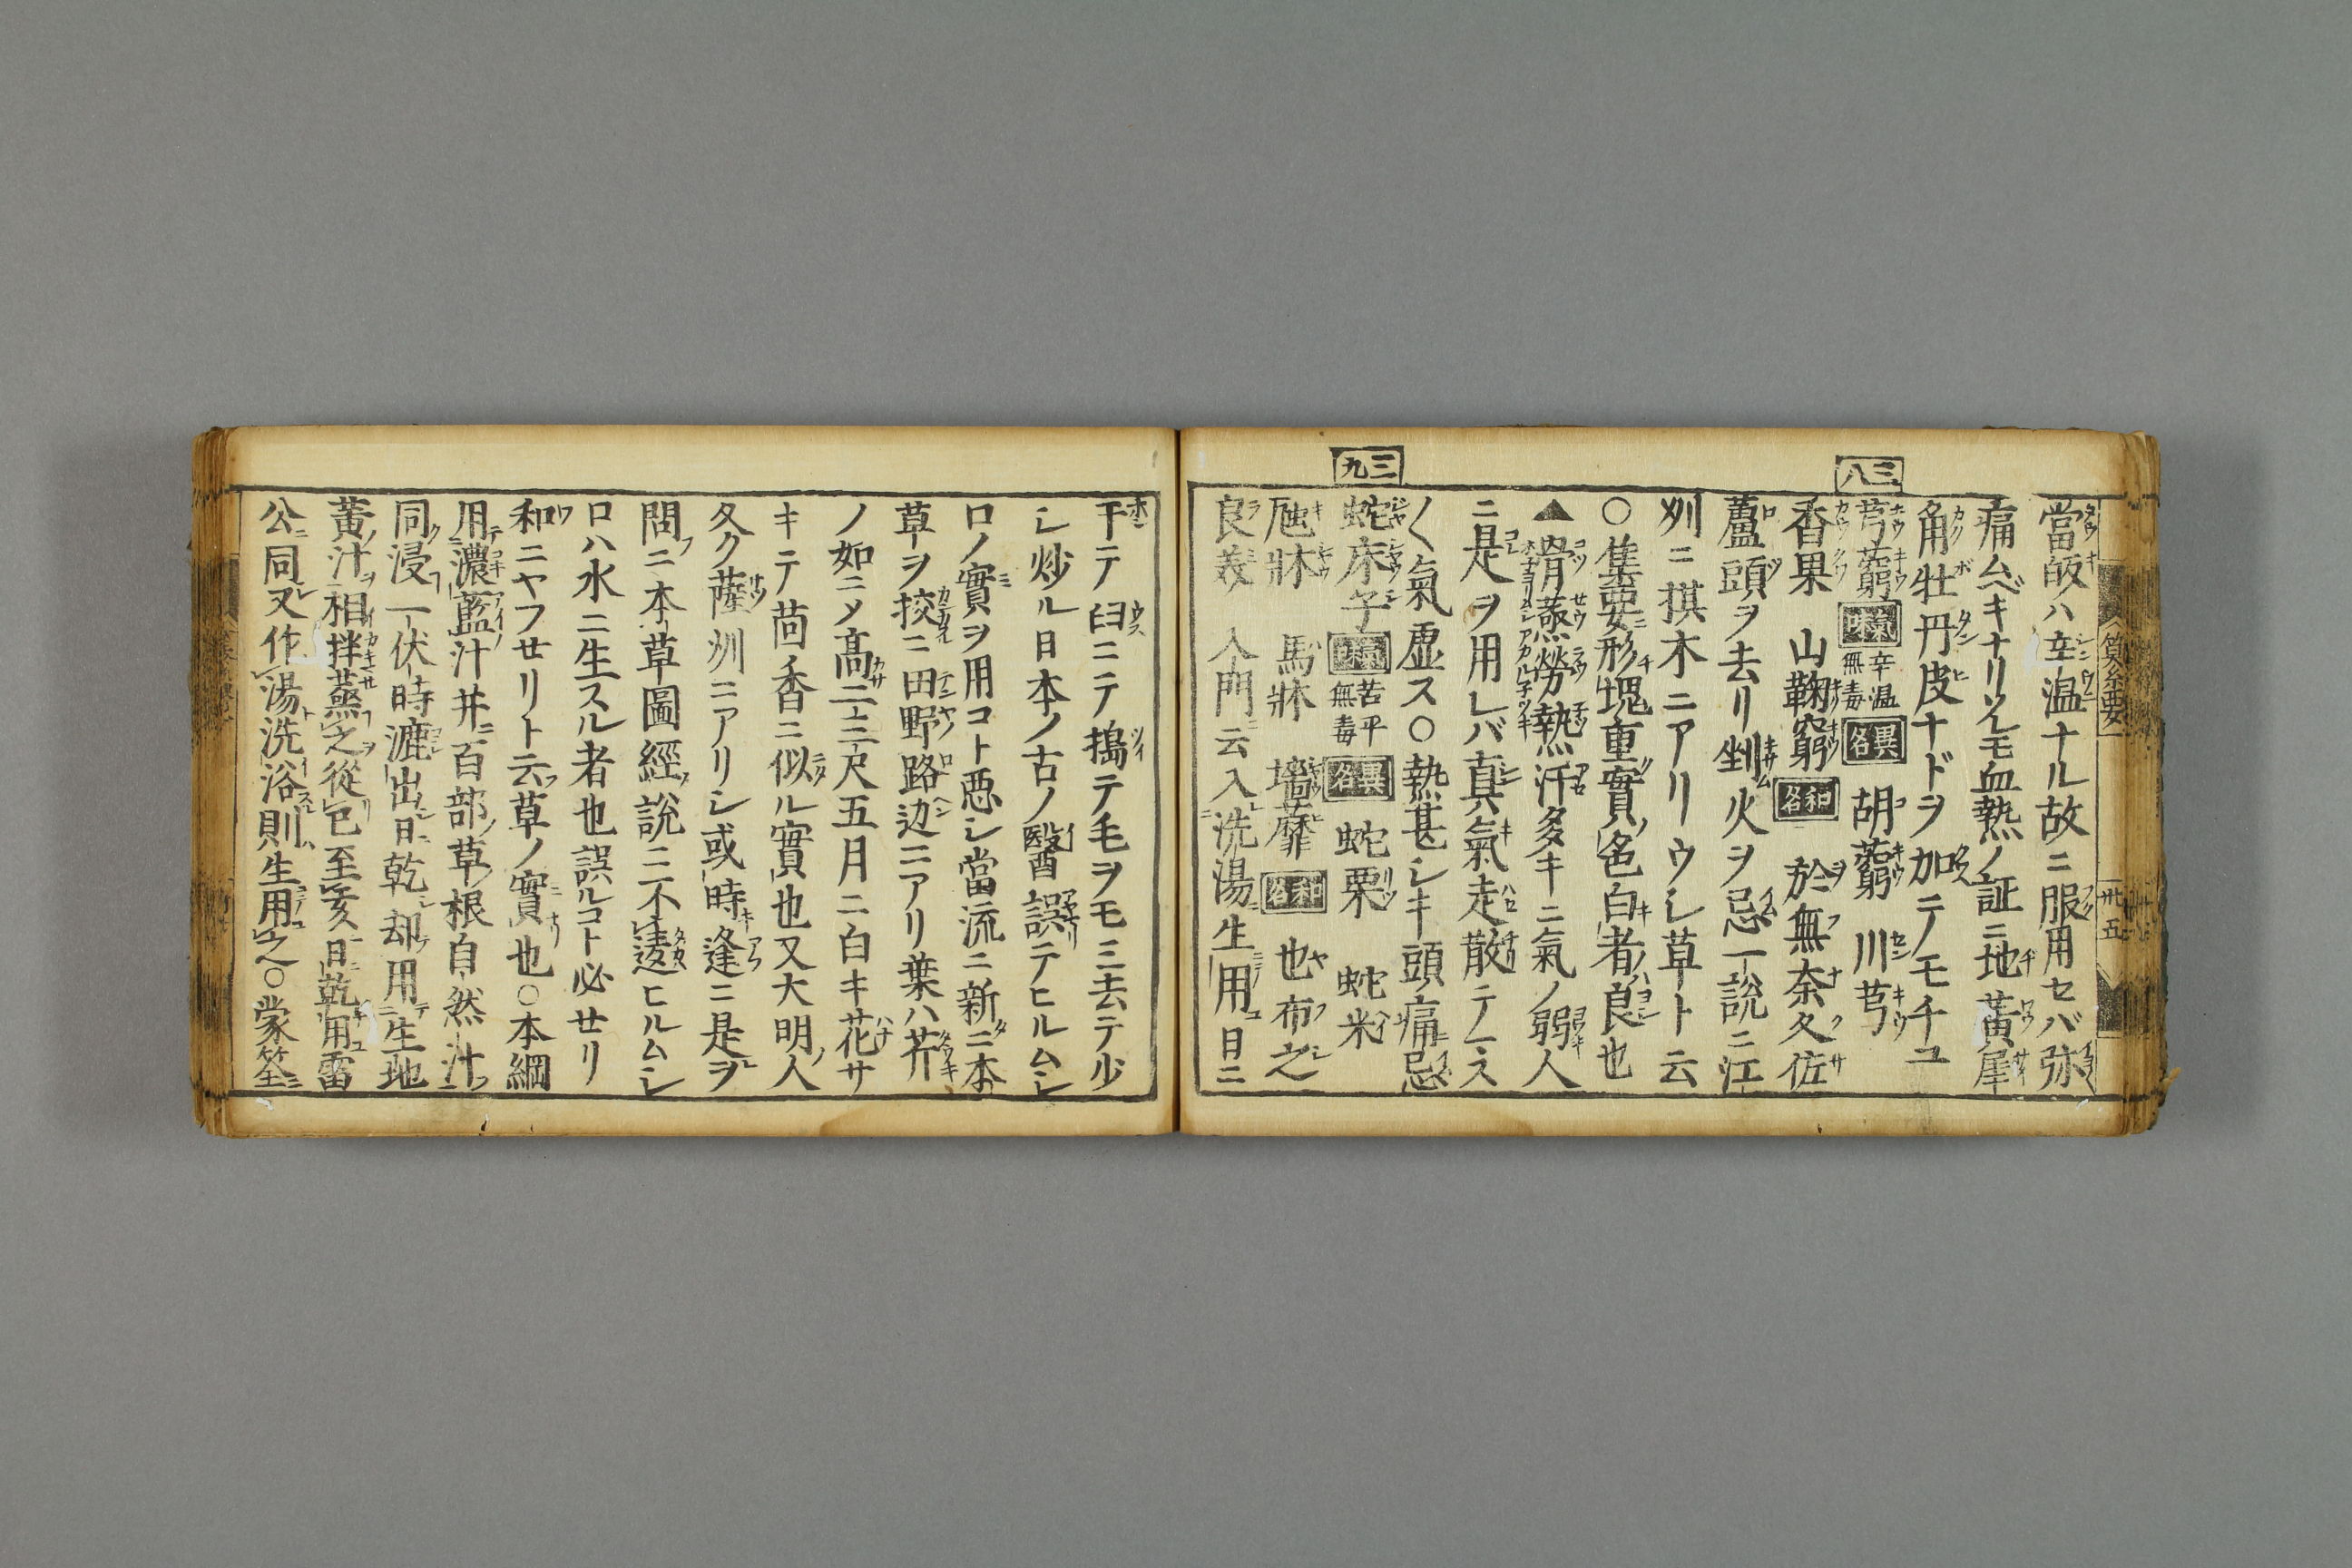 三八
當皈ハ辛温ナル故ニ服用セバ弥
痛ムベキナリソレモ血熱ノ証ニ地黃犀
角牡丹皮ナドヲ加テノモチユ
芎藭 氣味 辛温無毒 異名 胡藭 川芎
香果 山鞠窮 和名 於無奈久佐
蘆頭ヲ去リ剉火ヲ忌一説ニ江
州ニ棋木ニアリウシ草ト云
○集要形塊重實色白者良也
▲骨蒸勞熱汗多キニ氣ノ弱人
ニ是ヲ用レバ真氣走散テ
氣虚ス○熱甚シキ頭痛忌
三九
蛇床子 氣味 苦平無毒 異名 蛇粟 蛇米
虺牀 馬牀 墻蘼 和名 也布之
良義 入門云入洗湯生用日ニ
干テ臼ニテ搗テ毛ヲモミ去テ少
シ炒ル日本ノ古ノ醫誤テヒルムシ
ロノ實ヲ用コト悪シ當流ニ新ニ本
草ヲ挍ニ田野路辺ニアリ葉ハ芥
ノ如ニメ髙二三尺五月ニ白キ花サ
キテ茴香ニ似ル實也又大明人
久ク薩州ニアリシ或時逢ニ是ヲ
問ニ本草圖經説ニ不違ヒルムシ
ロハ水ニ生スル者也誤ルコト必セリ
和ニヤフセリト云草ノ實也○本綱
用濃藍汁并百部草根自然汁
同浸一伏時漉出日乾却用生地
黃汁相拌蒸之從巳至亥日乾用雷
公同又作湯洗浴則生用之○蒙筌
纂要
卅五